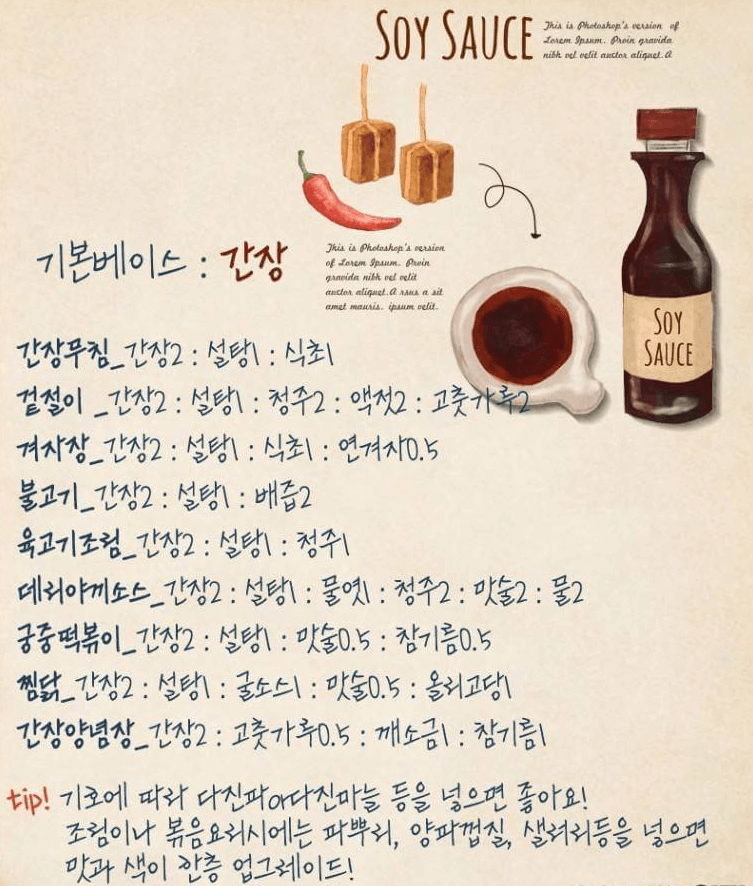 SOY SAUCE
This is Photoshop's version of
Lorem Ipsum. Proin gravida
nibh vel velit auctor aliquet. A
This is Photoshop's version
of Lorem Ipsum. Proin
gravida nibh vel velit
auctor aliquet. A rsus a sit
amet mauris. ipsum velit.
기본베이스 : 간장
SOY
SAUCE
간장무침_간장2 : 설탕1 : 식초1
겉절이 _간장2 : 설탕1 : 청주2 : 액젓2 : 고춧가루2
겨자장_간장2 : 설탕1 : 식초1 : 연겨자0.5
불고기_간장2 : 설탕1 : 배즙2
육고기조림_간장2 : 설탕1 : 청주1
데리야끼소스_간장2 : 설탕1 : 물엿1 : 청주2 : 맛술2 : 물2
궁중떡볶이_간장2 : 설탕1 : 맛술0.5 : 참기름0.5
찜닭_간장2 : 설탕1 : 굴소스1 : 맛술0.5 : 올리고당1
간장양념장_간장2 : 고춧가루0.5 : 깨소금1 : 참기름1
tip! 기호에 따라 다진파or다진마늘 등을 넣으면 좋아요!
조림이나 볶음요리시에는 파뿌리, 양파껍질, 샐러리등을 넣으면
맛과 색이 한층 업그레이드!